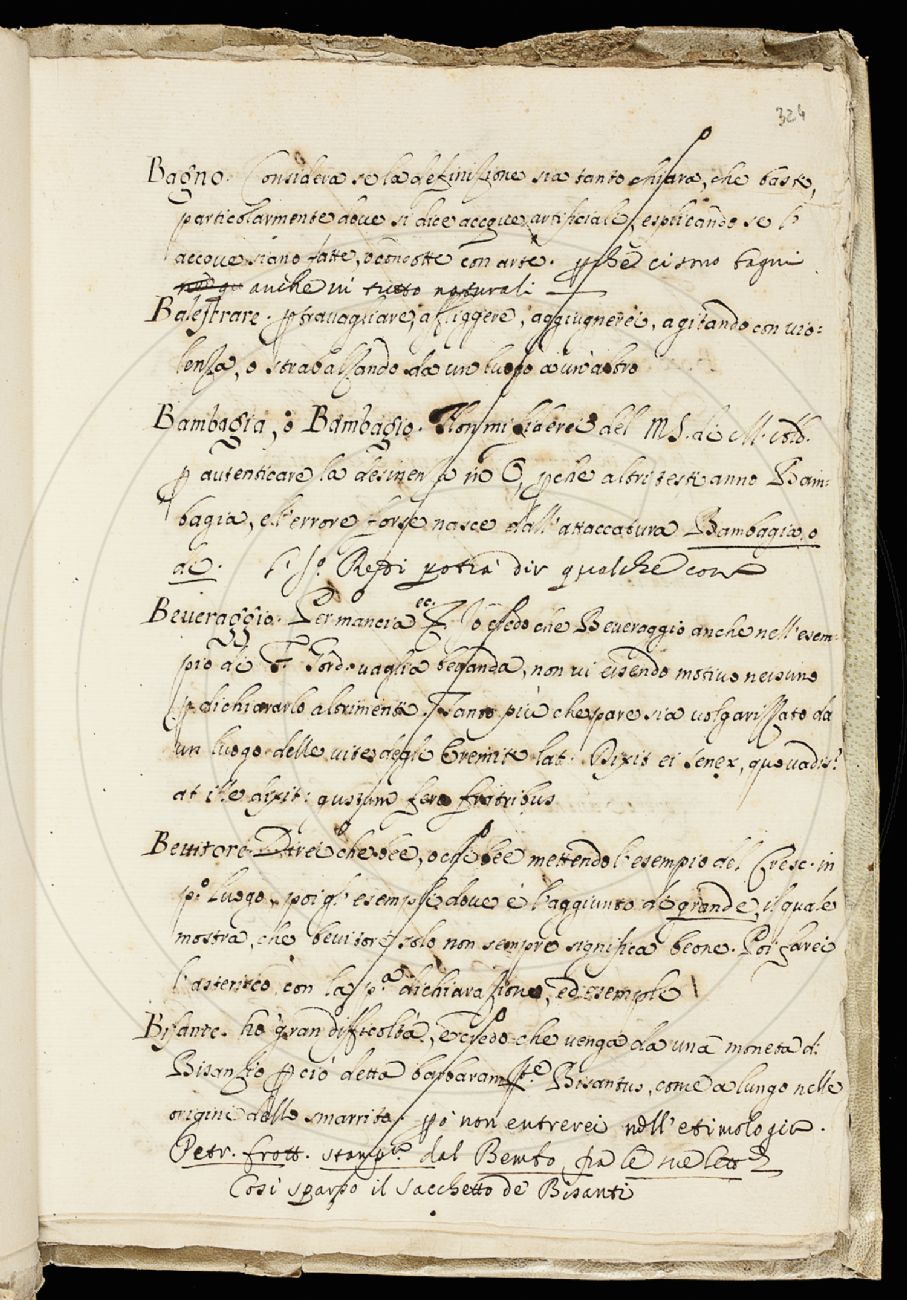 324
Bagno. Considera se la definizione sia tanto chiara, che baste,
particolarmente dove si dice accque artificiale, esplicando se l'
accque siano fatte, o condotte con arte. pchè ci sono bagni
anche vi tutto naturali
Balestrare. p travagliare, affliggere, aggiugnerei, agitando con vio=
lenza, o strabalzando da un luogo a un'altro
Bambagia, o Bambagio. Non mi fiderei del MS. di M. Aldb.
p autenticare la desinenza in O, pche altri testi anno Bam=
bagia, e l'errore forse nasce dall'attaccatura Bambagia, o
di. l' Sr. Redi potrà dir qualche cosa
Beveraggio. Per mancia ec. Io credo che Beveraggio anche nell'esem=
pio di F. Giord. vaglia bevanda, non vi essendo motivo nessuno
p dichiararlo altrimenti. Tanto più che pare sia volgarizzato da
un luogo delle vite degli Eremiti lat. Dixit ei Senex, quo vadis?
at ille dixit: gustum fero fratribus
Bevitore. Direi che bee, o chi bee mettendo l'esempio del Cresc. in
po. luogo, poi gl'esempli dove è l'aggiunto di grande, il quale
mostra, che bevitore solo non sempre significa beone. Poi farei
l'asterisco con la pa. dichiarazione, ed esempli
Bisante. ho gran difficoltà, e credo che venga da una moneta di
Bisanzio p ciò detta barbaramte. Bisantus, come a lungo nelle
origini dello smarrito. pò non entrerei nell'etimologia.
Petr. frott. stampa. dal Bembo fra le sue lett.
Così sparso il sacchetto de Bisanti